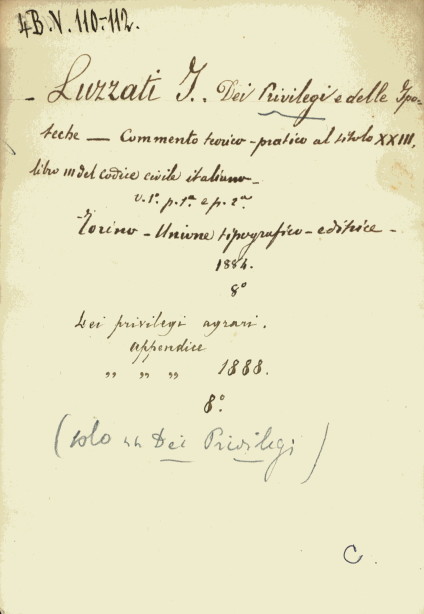 4 B. V. 110-112.
- Luzzati I.. Dei Privilegi e delle Ipo-
teche — Commento teorico-pratico al titolo XXIII,
libro III del codice civile italiano -
v. 1°. p. 1ª e p. 2ª
Torino - Unione tipografico-editrice -
1884.
8°
Dei privilegi agrari.
appendice
„ „ „ 1888.
8°.
(solo Dei Privilegi)
C.